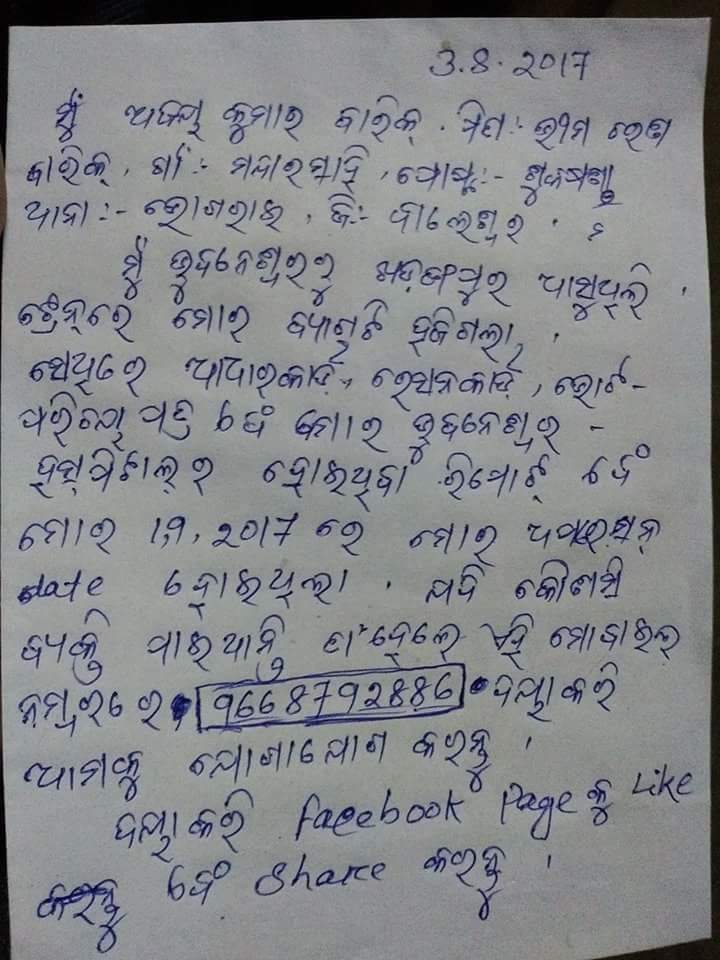 3.8.2017
ମୁଁ ଅଜୟ କୁମାର ବାରିକ୍, ପିତା:- ଭୀମ ସେନ
ବାରିକ୍, ଗାଁ:- ମନ୍ଦାରସାହି, ପୋଷ୍ଟ:-
ଥାନା:- ଭୋଗରାଇ, ଜି:- ବାଲେଶ୍ୱର.
ମୁଁ ଭୁବନେଶ୍ୱରରୁ ଖଡ଼ଗପୁର ଆସୁଥିଲି,
ଟ୍ରେନ୍‌ରେ ମୋର ବ୍ୟାଗ୍‌ଟି ହଜିଗଲା,
ସେଥିରେ ଆଧାରକାର୍ଡ଼, ରେସନକାର୍ଡ଼, ଭୋଟ-
ପରିଚୟ ପତ୍ର ଏବଂ ମୋର ଭୁବନେଶ୍ୱର -
ହସ୍ପିଟାଲ୍‌ର ହୋଇଥିବା ରିପୋର୍ଟ୍ ଏବଂ
ମୋର 19, 2017 ରେ ମୋର ଅପରେସନ୍
date ହୋଇଥିଲା. ଯଦି କୌଣସି
ବ୍ୟକ୍ତି ପାଇଥାନ୍ତି ତା'ହେଲେ ଏହି ମୋବାଇଲ୍
ନମ୍ବରରେ 9668792886 ଦୟାକରି
ଆମକୁ ଯୋଗାଯୋଗ କରନ୍ତୁ,
ଦୟାକରି facebook Page କୁ Like
କରନ୍ତୁ ଏବଂ share କରନ୍ତୁ,